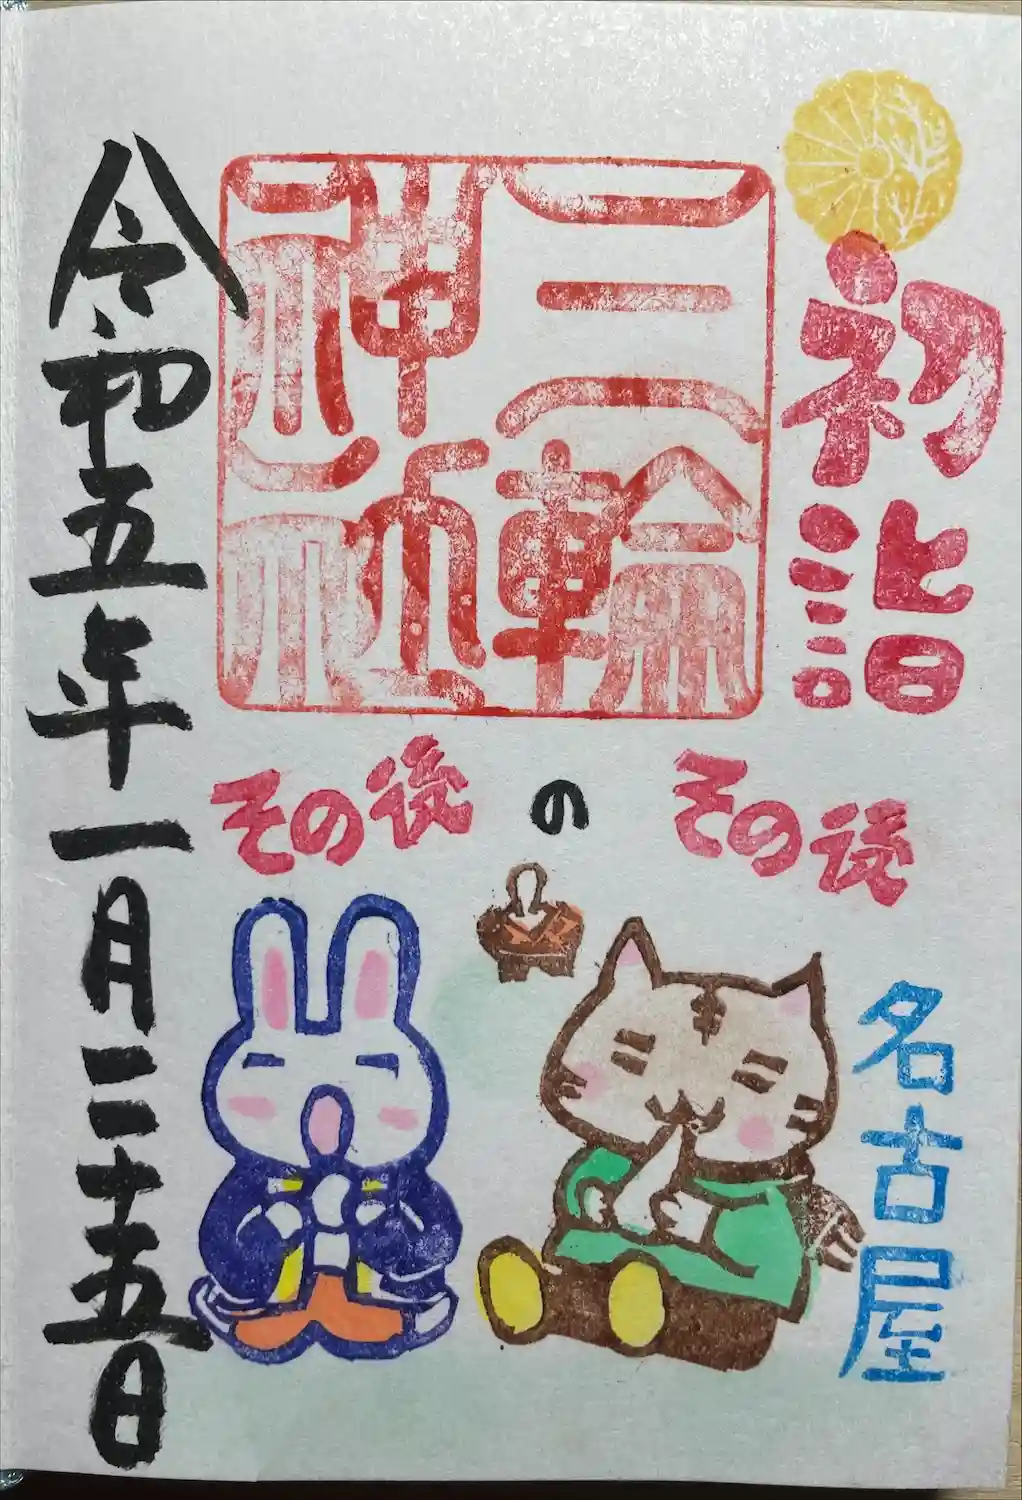 初詣
三輪
神社
その後
の
その後
名古屋
令和五年一月二十五日